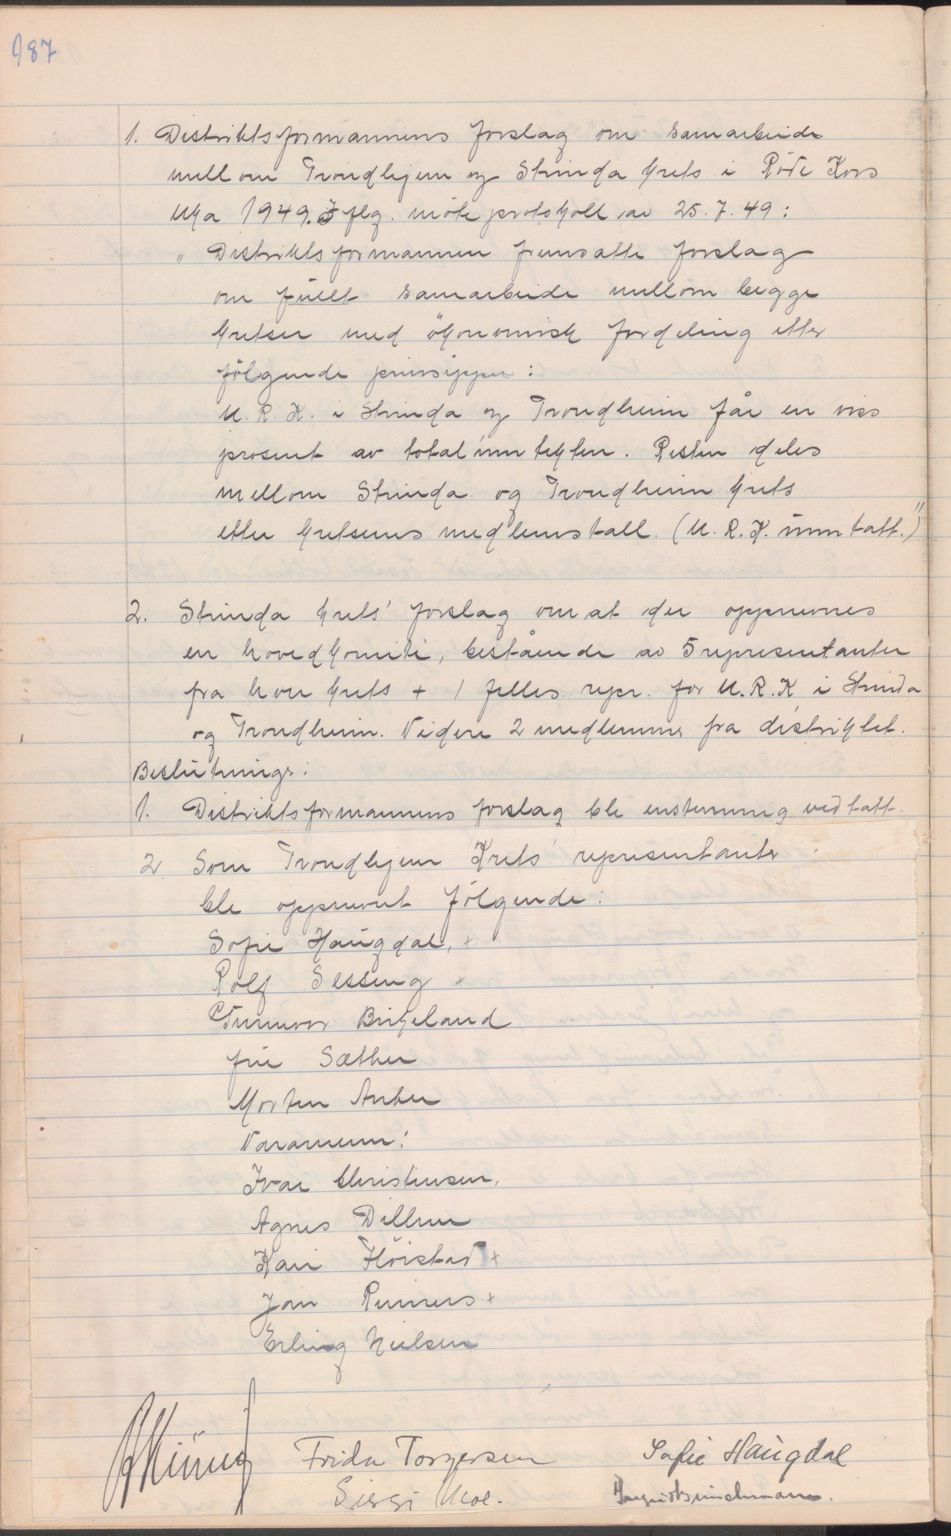 187
1. Distriktsformannens forslag om samarbeide
mellom Trondhjem og Strinda krets i Røde Kors
Uka 1949. Iflg. møteprotokoll av 25.7.49:
" Distriktsformannen fremsatte forslag
om fullt samarbeide mellom begge
kretser med økonomisk fordeling etter
følgende prinsipper:
U.R.K. i Strinda og Trondheim får en viss
prosent av totalinntekten. Resten deles
mellom Strinda og Trondheim krets
etter kretsenes medlemstall. (U.R.K. unntatt.)"
2. Strinda krets' forslag om at der oppnevnes
en hovedkomité, bestående av 5 representanter
fra hver krets + 1 felles repr. for U.R.K i Strinda
og Trondheim. Videre 2 medlemmer fra distriktet.
Beslutninger:
1. Distriktsformannens forslag ble enstemmig vedtatt.
2. Som Trondhjem Krets' representanter
ble oppnevnt følgende:
Sofie Haugdal, +
Rolf Sesseng +
Gunnvor Birkeland
fru Sæther
Morten Anker
Varamenn:
Ivar Christensen,
Agnes Dillern
Kari Fløistad +
Jan Reiners +
Erling Nielsen
Frida Torgersen
Sofie Haugdal
Sissi Moe.